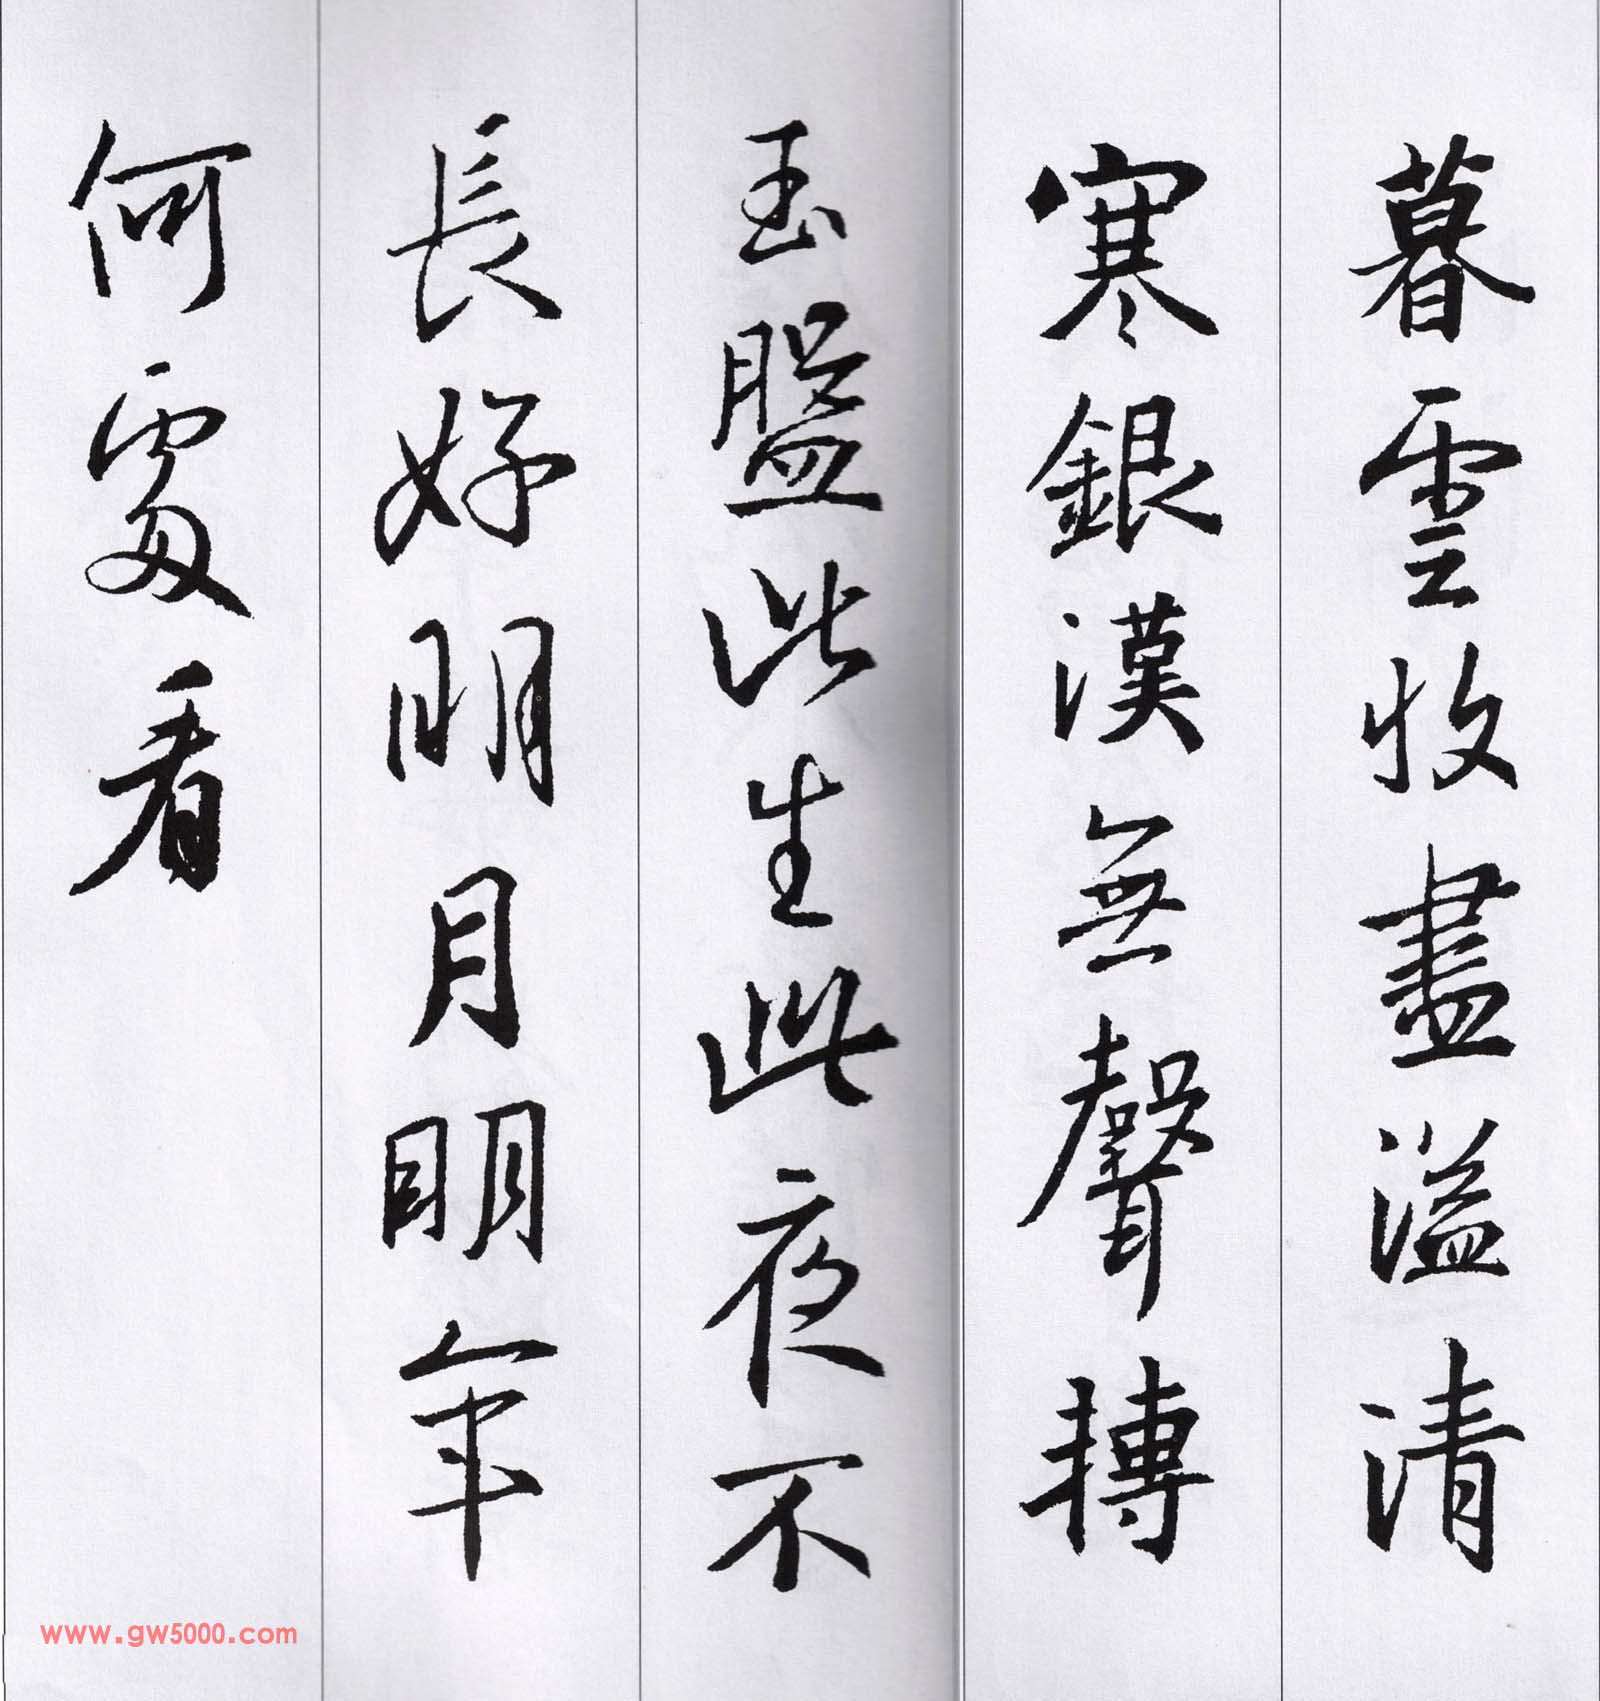 暮雲收盡溢清
寒銀漢無聲摶
玉盤此生此夜不
長好明月明年
何處看
www.gw5000.com